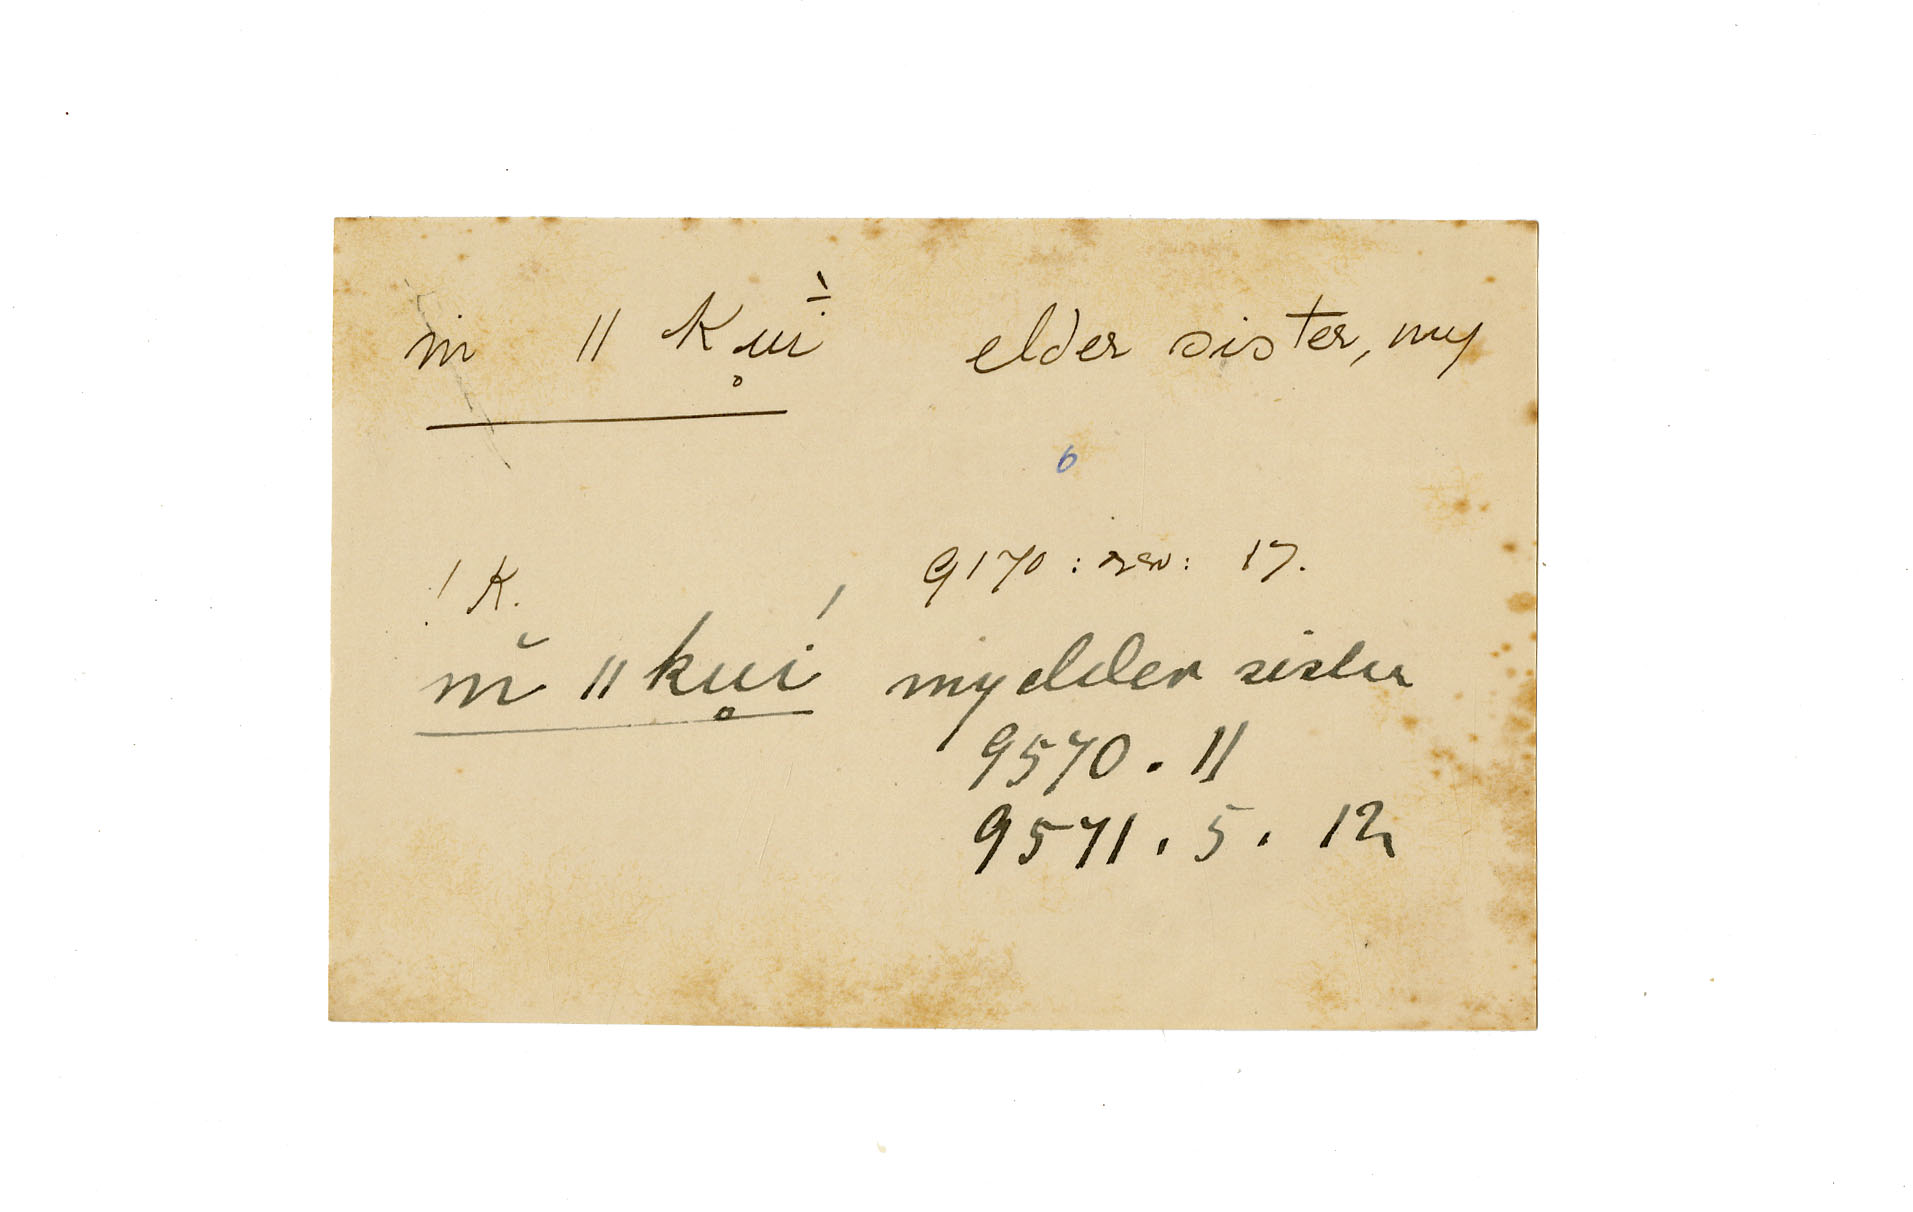 ṅ ǁ kụ̊ì̄ elder sister, my
6
! k. 9170 : rev : 17.
m̆ ǁ kụ̊í my elder sister
9570 . 11
9571 . 5 . 12